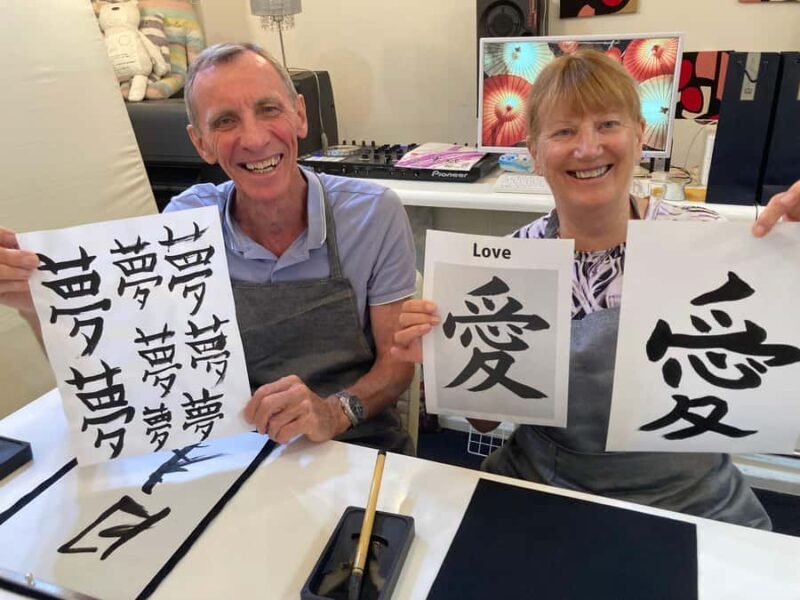 夢 夢 夢
夢 夢
夢 夢 夢
Love
愛
愛
Pioneer